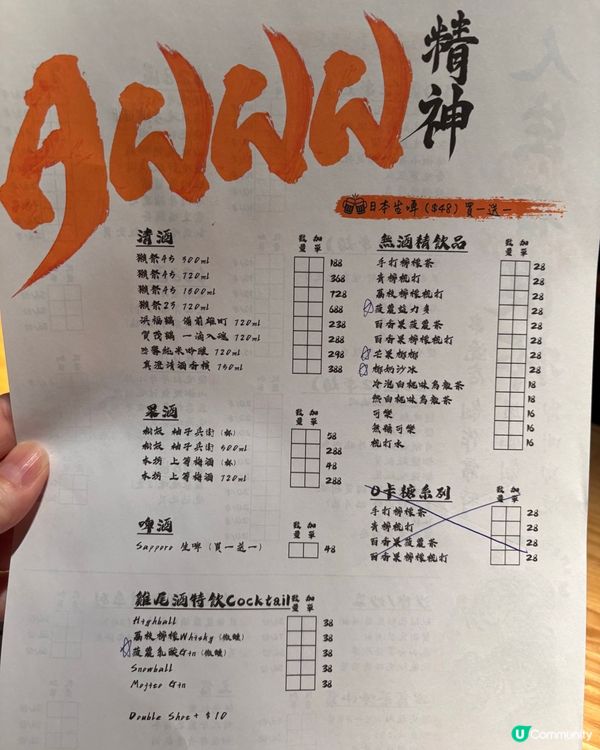 AWWW
精神
日本生啤($48)買一送一
清酒 數量 加單
獺祭45 300ml 188
獺祭45 720ml 368
獺祭45 1800ml 728
獺祭23 720ml 688
浜福鶴 備前雄町 720ml 238
賀茂鶴 一滴入魂 720ml 288
純米吟釀 720ml 298
真澄清酒香檳 750ml 388
果酒 數量 加單
樹枝 柚子兵衛 (杯) 58
樹枝 柚子兵衛 500ml 288
木坊 上等梅酒 (杯) 48
木坊 上等梅酒 720ml 288
啤酒 數量 加單
Sapporo 生啤 (買一送一) 48
雞尾酒特飲Cocktail 數量 加單
Highball 38
荔枝檸檬Whisky (微酸) 38
菠蘿乳酸Gin (微酸) 38
Snowball 38
Mojito Gin 38
Double Shot + $10
無酒精飲品 數量 加單
手打檸檬茶 28
青檸梳打 28
荔枝檸檬梳打 28
菠蘿益力多 28
百香果菠蘿茶 28
百香果檸檬梳打 28
芒果椰椰 28
椰奶沙冰 28
冷泡白桃味烏龍茶 18
熱白桃味烏龍茶 18
可樂 16
無糖可樂 16
梳打水 16
0卡糖系列 數量 加單
手打檸檬茶 28
青檸梳打 28
百香果菠蘿茶 28
百香果檸檬梳打 28
U Community